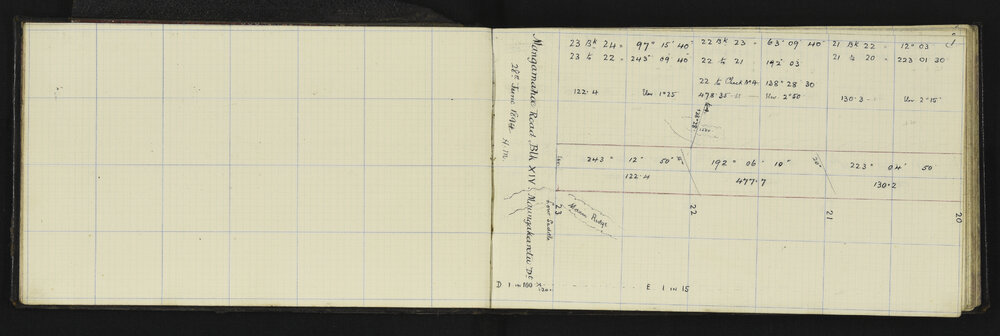 1
23 Bk 24 = 97° 15' 40"
22 Bk 23 = 63° 09' 40"
21 Bk 22 = 12° 03'
23 to 22 = 243° 09' 40"
22 to 21 192° 03
21 to 20 = 223 01 30
22 to Check No 4 138° 28 30
122.4 Var 1°25
478.35 Var 2°50
130.3 Var 2°15'
243° 12' 50"
192° 06' 10"
223° 04' 50
122.4
477.7
130.2
23
22
21
20
Main Ridge
Low Saddle
Mangamahu Road, Blk XIV, Maungakaretu Dt
28th June 1894. H.M.
D 1 IN 100
E 1 IN 15